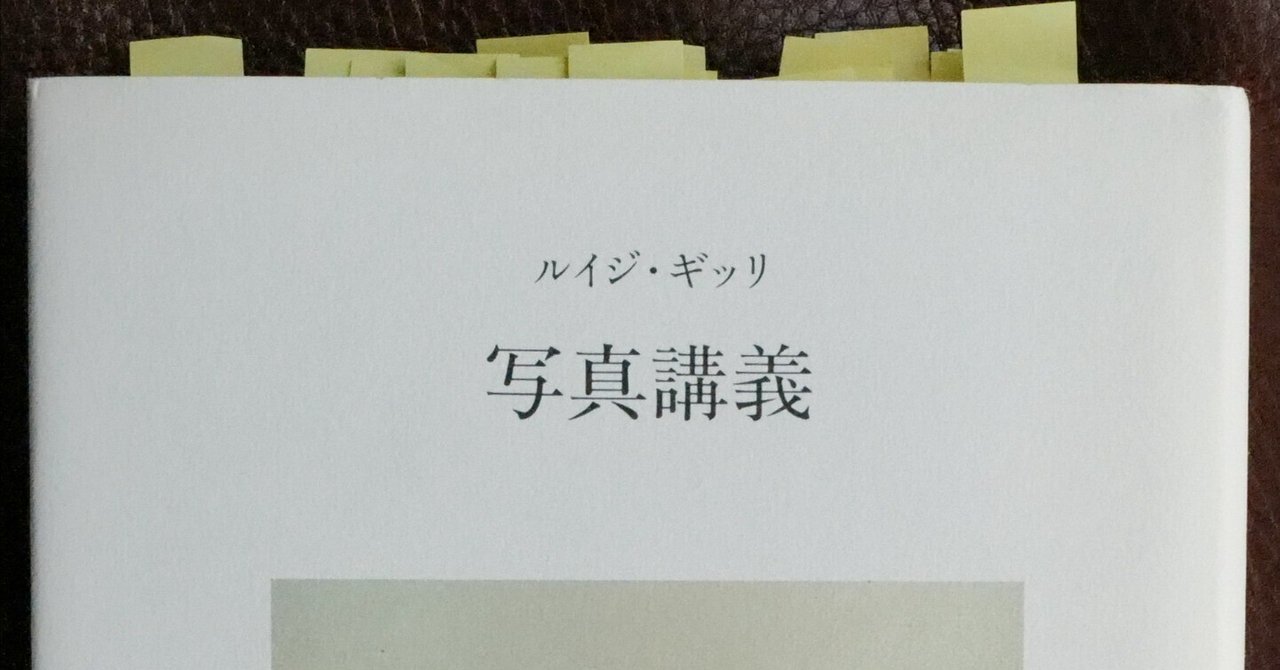 ルイジ・ギッリ
写真講義